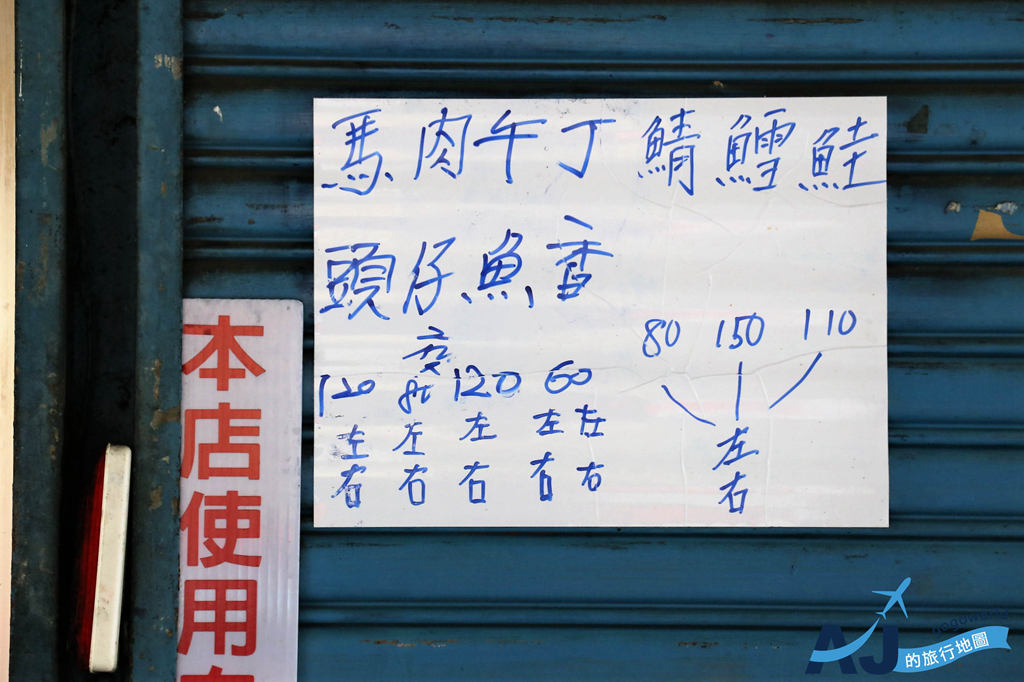 馬肉午丁 鯖 鱈 鮭
頭仔魚香
80 150 110
120 120 60
左 左 左 左 左 左
右 右 右 右 右 右
本店使用
AJ
的旅行地圖